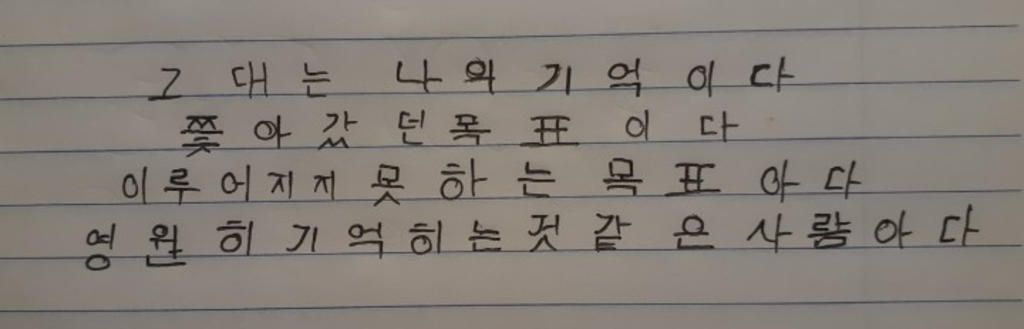 그대는 나의 기억이다
쫓아갔던 목표이다
이루어지지 못하는 목표아다
영원히 기억히는것 같은 사람아다